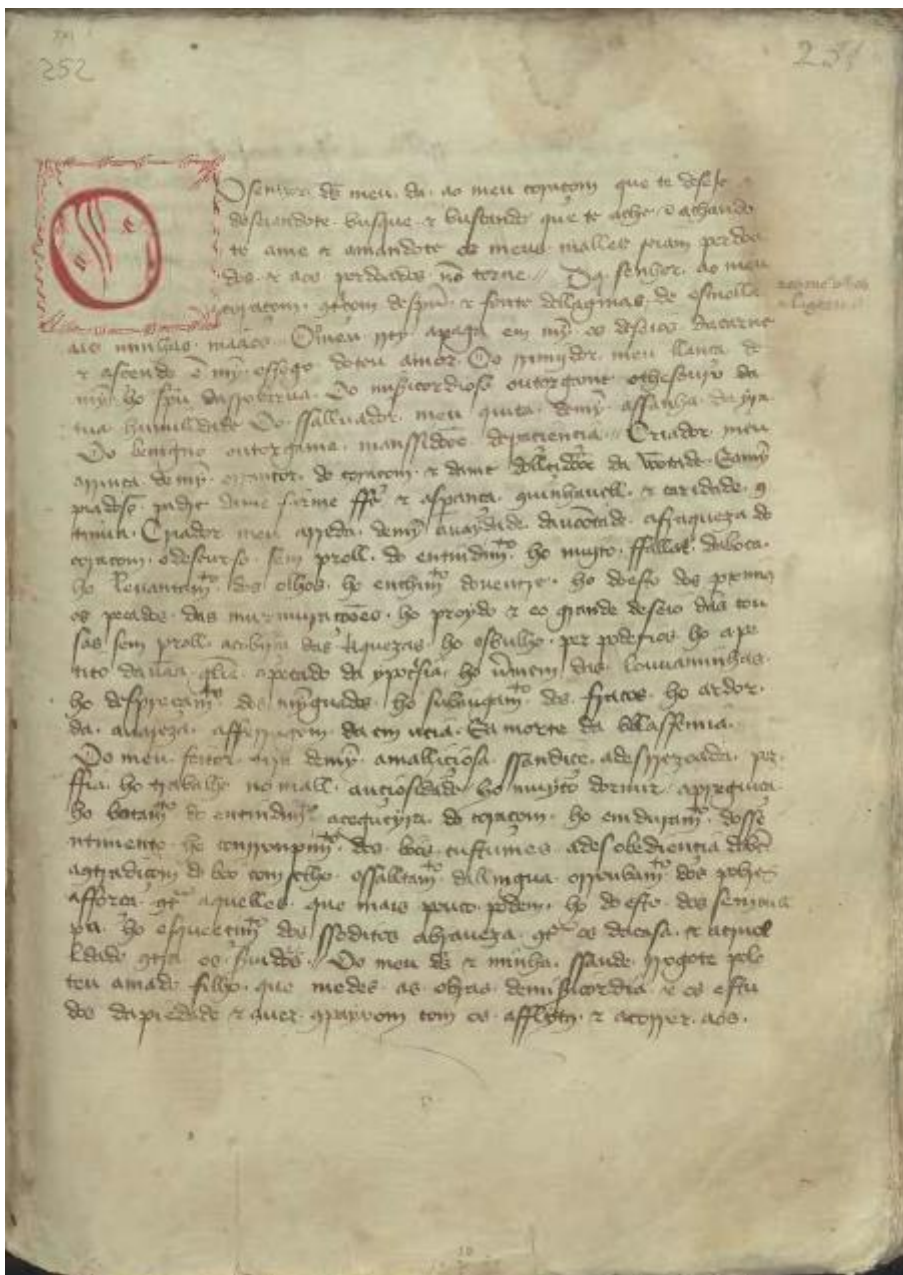 252
O senhor ds meu da ao meu coraçom que te deseje
deseiandote busque & buscando que te ache & achando
te ame & amandote os meus malles seiam perdoa
dos & aos perdoados nõ torne // Da senhor ao meu
coraçom
aas minhas maãos O meu rey apaga em mỹ os deseios da carne
& ascende ẽ mỹ o ffogo do teu amor Oo rimidor meu llança de
mỹ ho spũ da soberva Oo misicordioso outorgame o thesouro da
tua humildade Oo ssalluador meu quita de mỹ a ssanha da yra
Oo benigno outorgame manssidõe de paciencia // Criador meu
arrinca de mỹ o rrancor do coraçom & dame
padre dame firme ffe & asperança & caridade 9
tinua Criador meu de mỹ a vaydade da võtade a fraqueza do
coraçom sem proll do entindimto ho muyto ffallar da boca
ho levantamto dos olhos ho enchimto do ventre ho doesto dos
os pecados das murmuraçoões ho & eo grande deseio das cou
sas sem proll a cobiiça das rriquezas ho esbulho per poderios ho ape
tito da vãa glia o pecado da ypocrisia ho das louvaminhas
ho desprezamto dos mỹguados ho subiugamto dos fracos ho ardor
da avareza a fferrugem da emueia & a morte da bllasfemia
Oo meu feitor tira de mỹ a malliciosa ssandice a desrrezoada per
ffia ho trabalho no mall a ouciosidade ho muyto dormir a priguiça
ho botamto do entindimto a cegueyra do coraçom ho enduramto do sse
ntimento ho conrronpimto dos boõs custumes a desobediencia do bẽ
a 9tradiçom do boo comselho o ssolltamto da lingua o rroubamto dos pobres
a fforça 9tra aquelles que mais pouco podem ho doesto dos sem cul
pa ho esqueecimto dos ssoditos a braveza 9tra os da casa & a cruel
ldade 9tra os Oo meu ds & minha ssaude rrogote polo
teu amado filho que me des as obras de misicordia & os estu
dos da piedade & aver 9paixom com os afflitos & acorrer aos